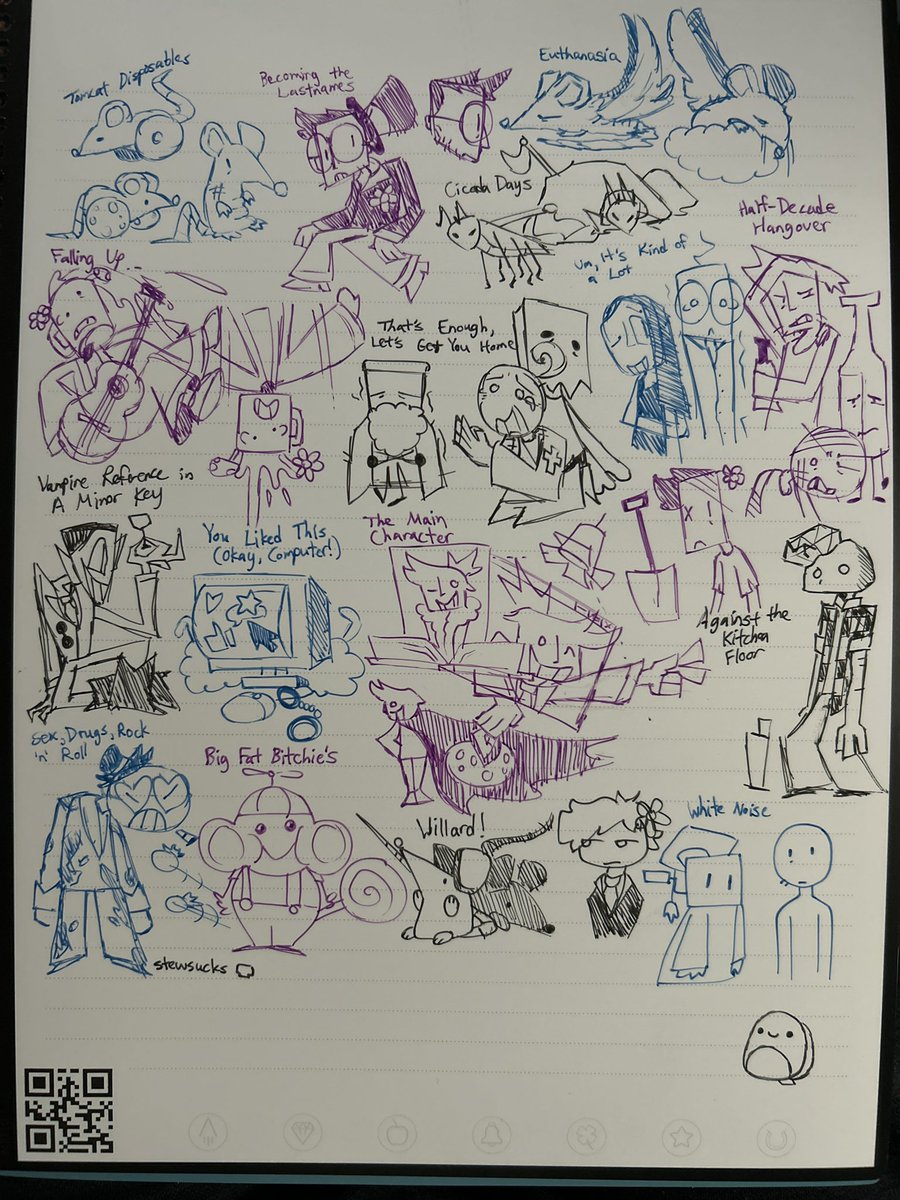 Tomcat Disposables
Becoming the
Lastnames
Euthanasia
Cicada Days
Half-Decade
Hangover
Falling Up
Um, it's Kind of
a Lot
That's Enough,
Let's Get You Home
Vampire Reference in
A Minor Key
You Liked This
(Okay, Computer!)
The Main
Character
Against the
Kitchen
Floor
Sex, Drugs, Rock
'n' Roll
Big Fat Bitchie's
Willard!
White Noise
stewsucks